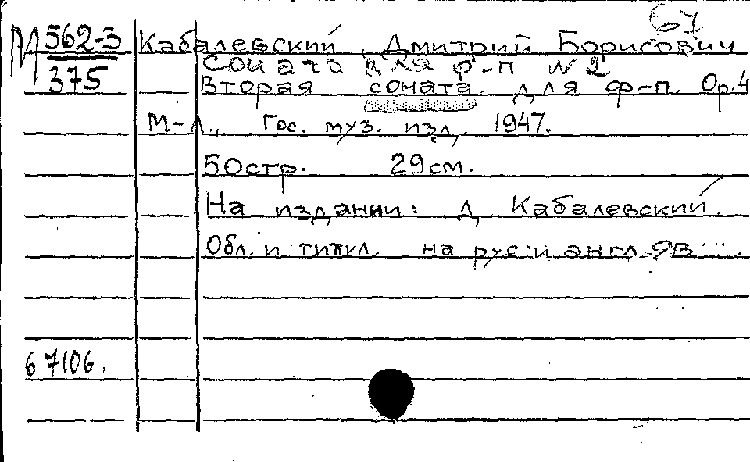 67
М 562-3 Кабалевский, Дмитрий Борисович
375
Соната для ф-п № 2
Вторая соната для ф-п. Ор. 4
М-Л., Гос. муз. изд, 1947.
50стр. 29см.
На издании: Д Кабалевский.
Обл. и титул. на рус и англ яз
67106.